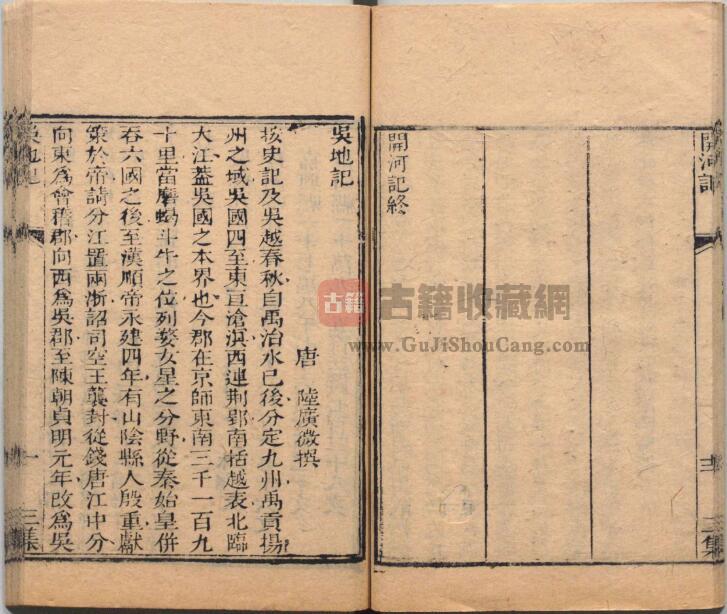 開河記
開河記終
十二
三集
吳地記
唐 陸廣微撰
按史記及吳越春秋自禹治水已後分定九州禹貢揚
州之域吳國四至東亘滄溟西連荆郢南括越表北臨
大江蓋吳國之本界也今郡在京師東南三千一百九
十里當磨蝎斗牛之位列婺女星之分野從秦始皇併
吞六國之後至漢順帝永建四年有山陰縣人殷重獻
策於帝請分江置兩浙詔司空王龔封從錢唐江中分
向東爲會稽郡向西爲吳郡至陳朝貞明元年改爲吳
吳地記
一
三集
古籍
古籍收藏網
www.GuJiShouCang.com